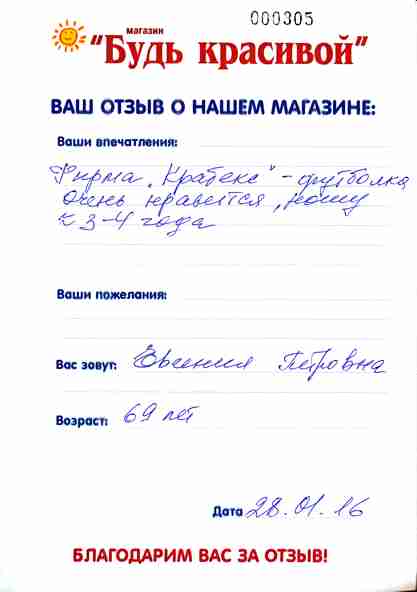 000305
магазин
"Будь красивой"
ВАШ ОТЗЫВ О НАШЕМ МАГАЗИНЕ:
Ваши впечатления:
Фирма „Крабекс" - футболка
очень нравится, ношу
3-4 года
Ваши пожелания:
Вас зовут: Евгения Петровна
Возраст: 69 лет
Дата 28.01.16
БЛАГОДАРИМ ВАС ЗА ОТЗЫВ!